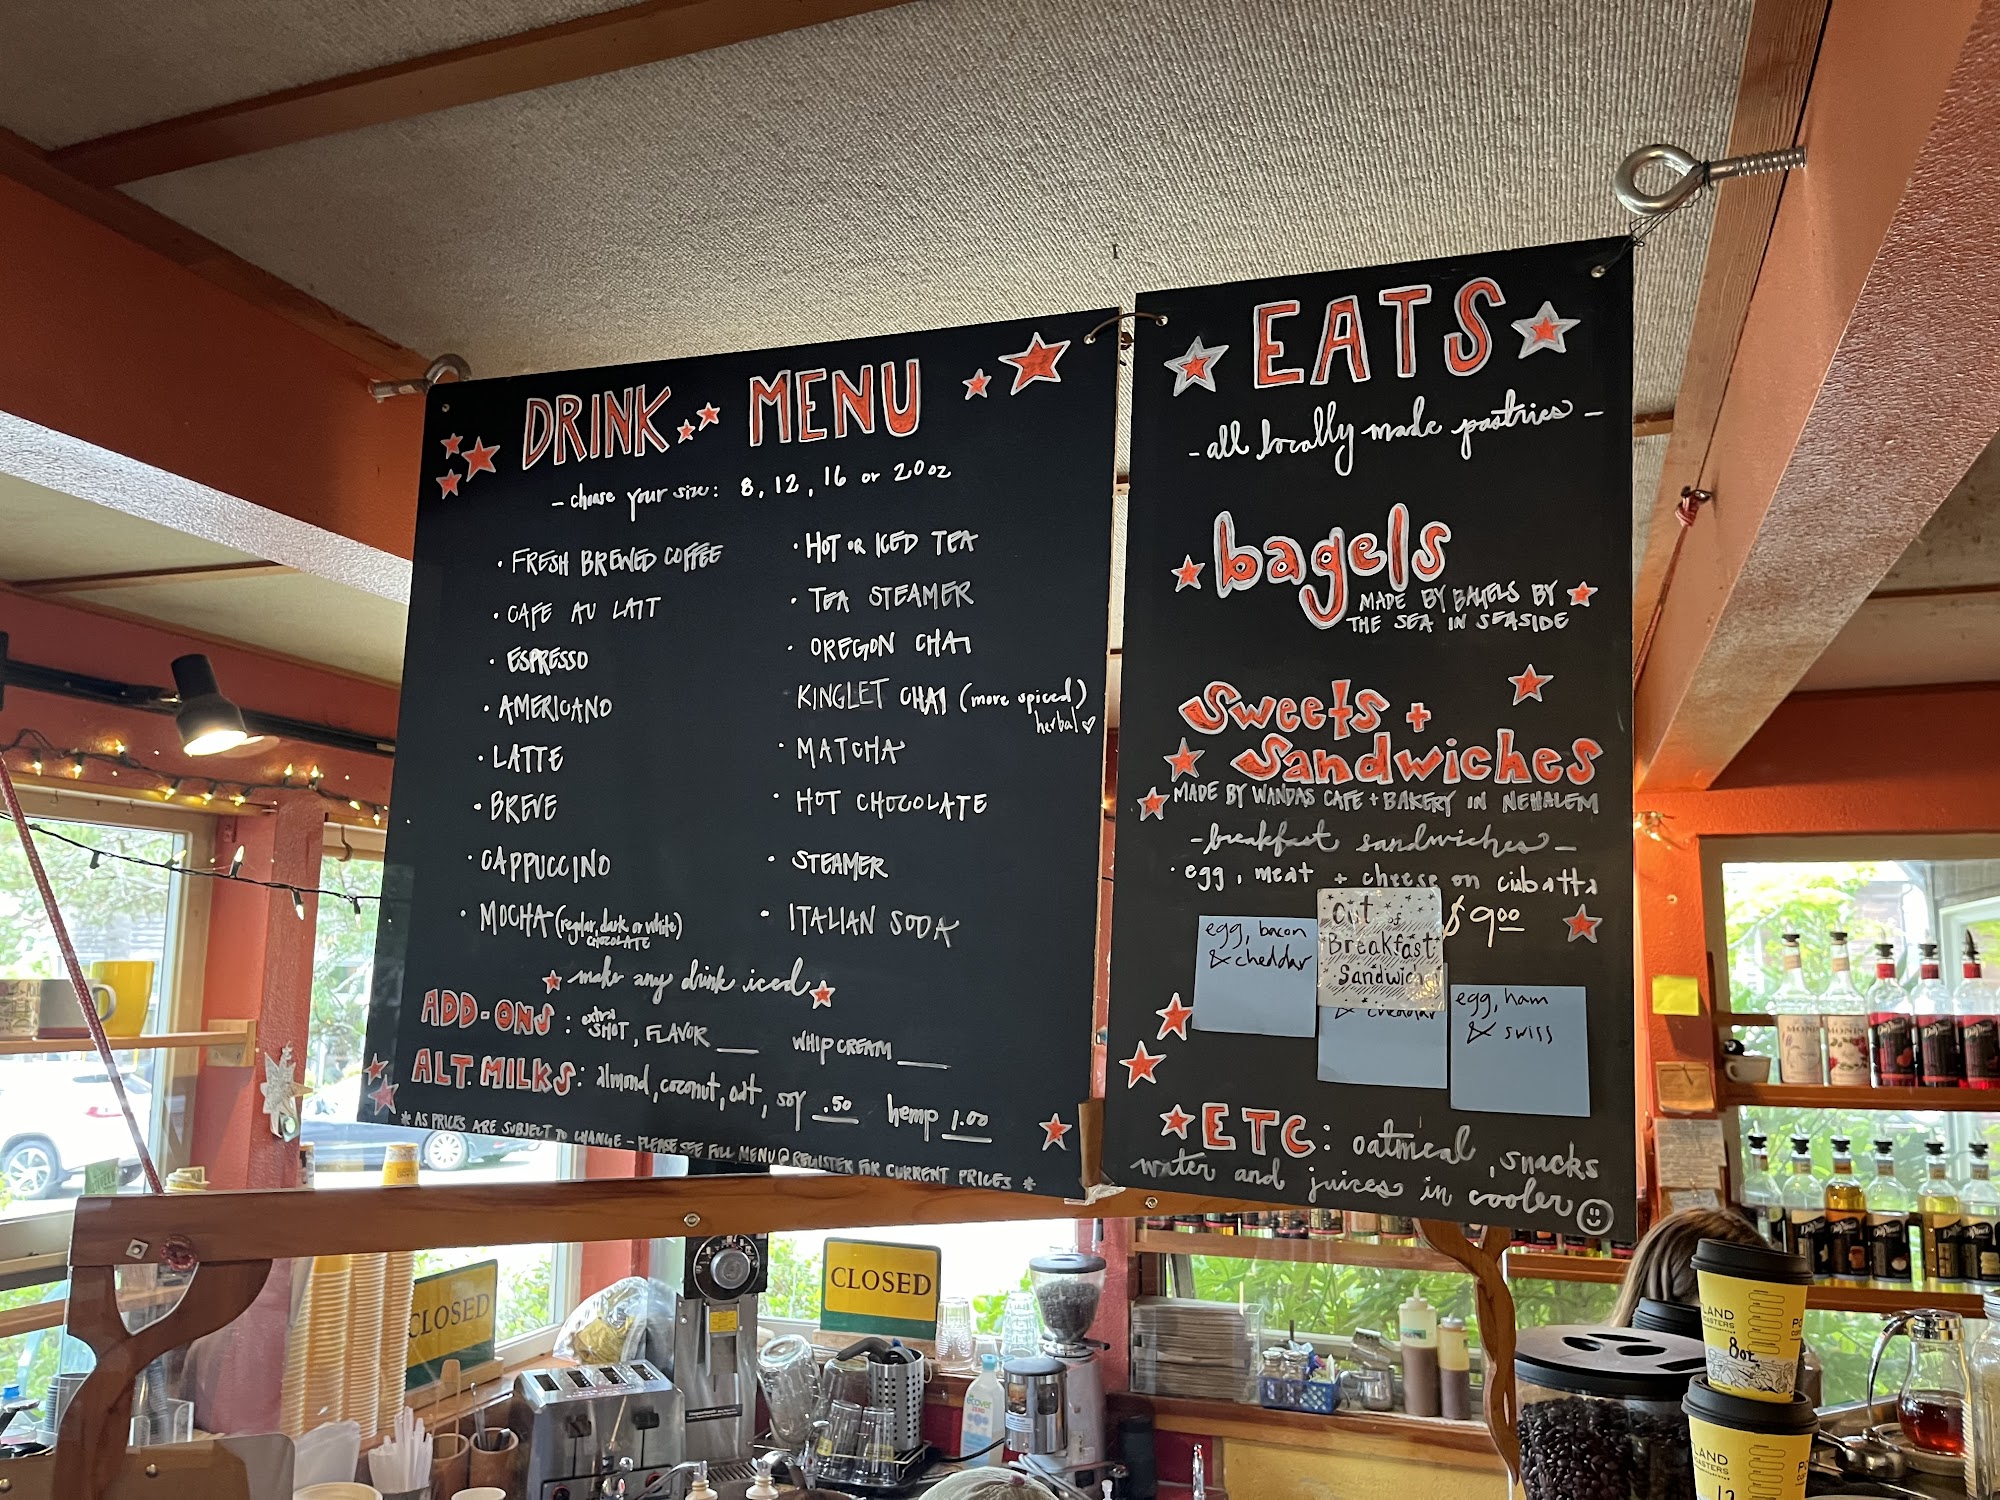 DRINK MENU
- choose your size: 8, 12, 16 or 20oz
• FRESH BREWED COFFEE
• CAFE AU LAIT
• ESPRESSO
• AMERICANO
• LATTE
• BREVE
• CAPPUCCINO
• MOCHA (regular, dark or white)
CHOCOLATE
• HOT OR ICED TEA
• TEA STEAMER
• OREGON CHAI
KINGLET CHAI (more spiced)
herbal ♡
• MATCHA
• HOT CHOCOLATE
• STEAMER
• ITALIAN SODA
make any drink iced
ADD-ONS: extra SHOT, FLAVOR ___ WHIP CREAM ___
ALT. MILKS: almond, coconut, oat, soy .50 hemp 1.00
* AS PRICES ARE SUBJECT TO CHANGE - PLEASE SEE FULL MENU @ REGISTER FOR CURRENT PRICES *
EATS
- all locally made pastries -
bagels
MADE BY BAGELS BY
THE SEA IN SEASIDE
Sweets +
Sandwiches
MADE BY WANDAS CAFE + BAKERY IN NEHALEM
- breakfast sandwiches -
• egg, meat + cheese on ciabatta
$9.00
egg, bacon
& cheddar
Out of
Breakfast
Sandwich
& cheddar
egg, ham
& swiss
ETC: oatmeal, snacks
water and juices in cooler
CLOSED
CLOSED
ecover
MONIN
MONIN
DaVinci
DaVinci
DaVinci
LAND
ROASTERS
8oz
LAND
ROASTERS
12